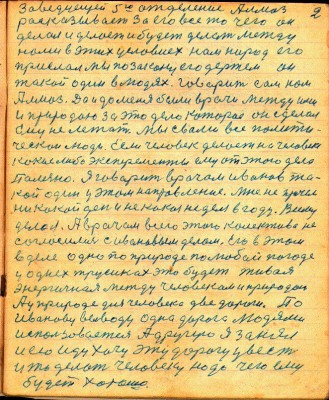 2
Заведующей 5го отделение Алмоз
рассказывает За его все то чего он
делал и делает и будет делат между
нами в этих условиях нам народ его
прислал мы по закону его держем он
такой один в людях. Говарит сам нам
Алмоз. Да и до меня были врачи между ими
и природаю За это дело каторае он сделал
Ему не мешат. Мы свами все полити-
ческаи люди. Если человек делает на человеке
какие либо Эксперементы ему от этого дела
Полезно. Я говарит врачам иванов та-
кой один у этом направление. Мне не нужен
никакой ден и не какая неделя в году. Всему
делол. А врачам всего этого колектива не
согласится с ивановым делам. Его в этом
в деле одно по природе по любай погоде
у одних трусиках это будет живая
Энергичная между человекам и природаю
А у природе для человека две дароги. По
Иванову выводу одна дорога людями
используется А другую Я занел
и по ей иду хочу эту дорогу увест
и то делат человеку надо чего ему
будет хорошо.